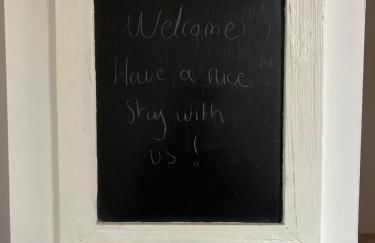 Welcome
Have a nice
Stay with
us !